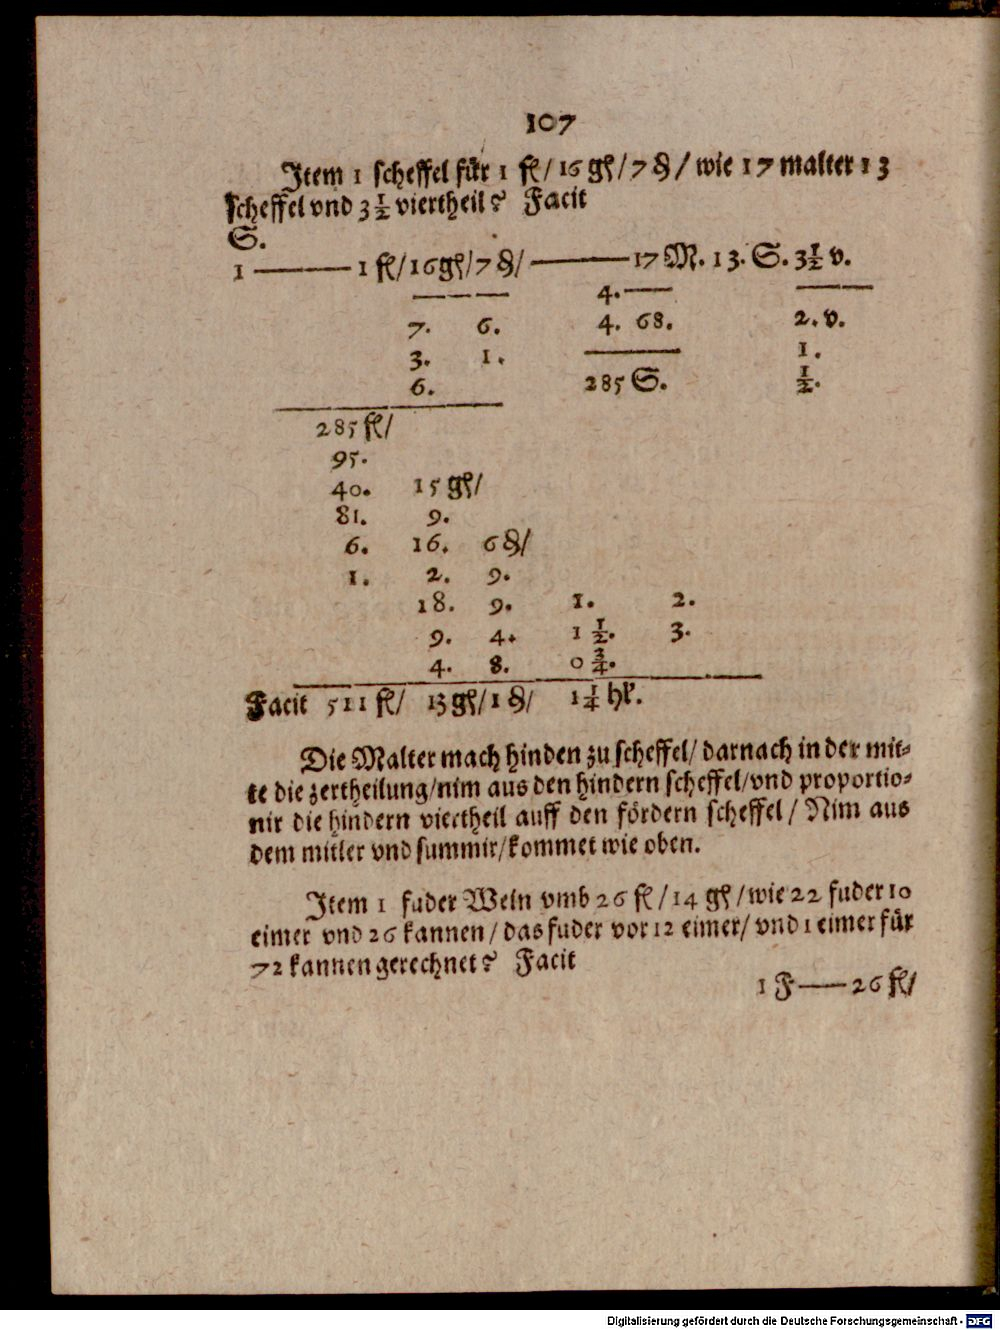 107
Item 1 scheffel für 1 fl/ 16 gß/ 7 ₰/ wie 17 malter 13
scheffel vnd 3 1/2 viertheil? Facit
S.
1 ——— 1 fl/ 16 gß/ 7 ₰/ ——— 17 M. 13. S. 3 1/2 v.
4.
7. 6. 4. 68. 2. v.
3. 1. 1.
6. 285 S. 1/2.
285 fl/
95.
40. 15 gß/
81. 9.
6. 16. 6 ₰/
1. 2. 9.
18. 9. 1. 2.
9. 4. 1 1/2. 3.
4. 8. 0 3/4.
Facit 511 fl/ 13 gß/ 1 ₰/ 1 1/4 hl.
Die Malter mach hinden zu scheffel/ darnach in der mit-
te die zertheilung/ nim aus den hindern scheffel/ vnd proportio-
nir die hindern viertheil auff den fördern scheffel/ Nim aus
dem mitler vnd summir/ kommet wie oben.
Item 1 fuder Wein vmb 26 fl/ 14 gß/ wie 22 fuder 10
eimer vnd 26 kannen/ das fuder vor 12 eimer/ vnd 1 eimer für
72 kannen gerechnet? Facit
1 F — 26 fl/
Digitalisierung gefördert durch die Deutsche Forschungsgemeinschaft - DFG